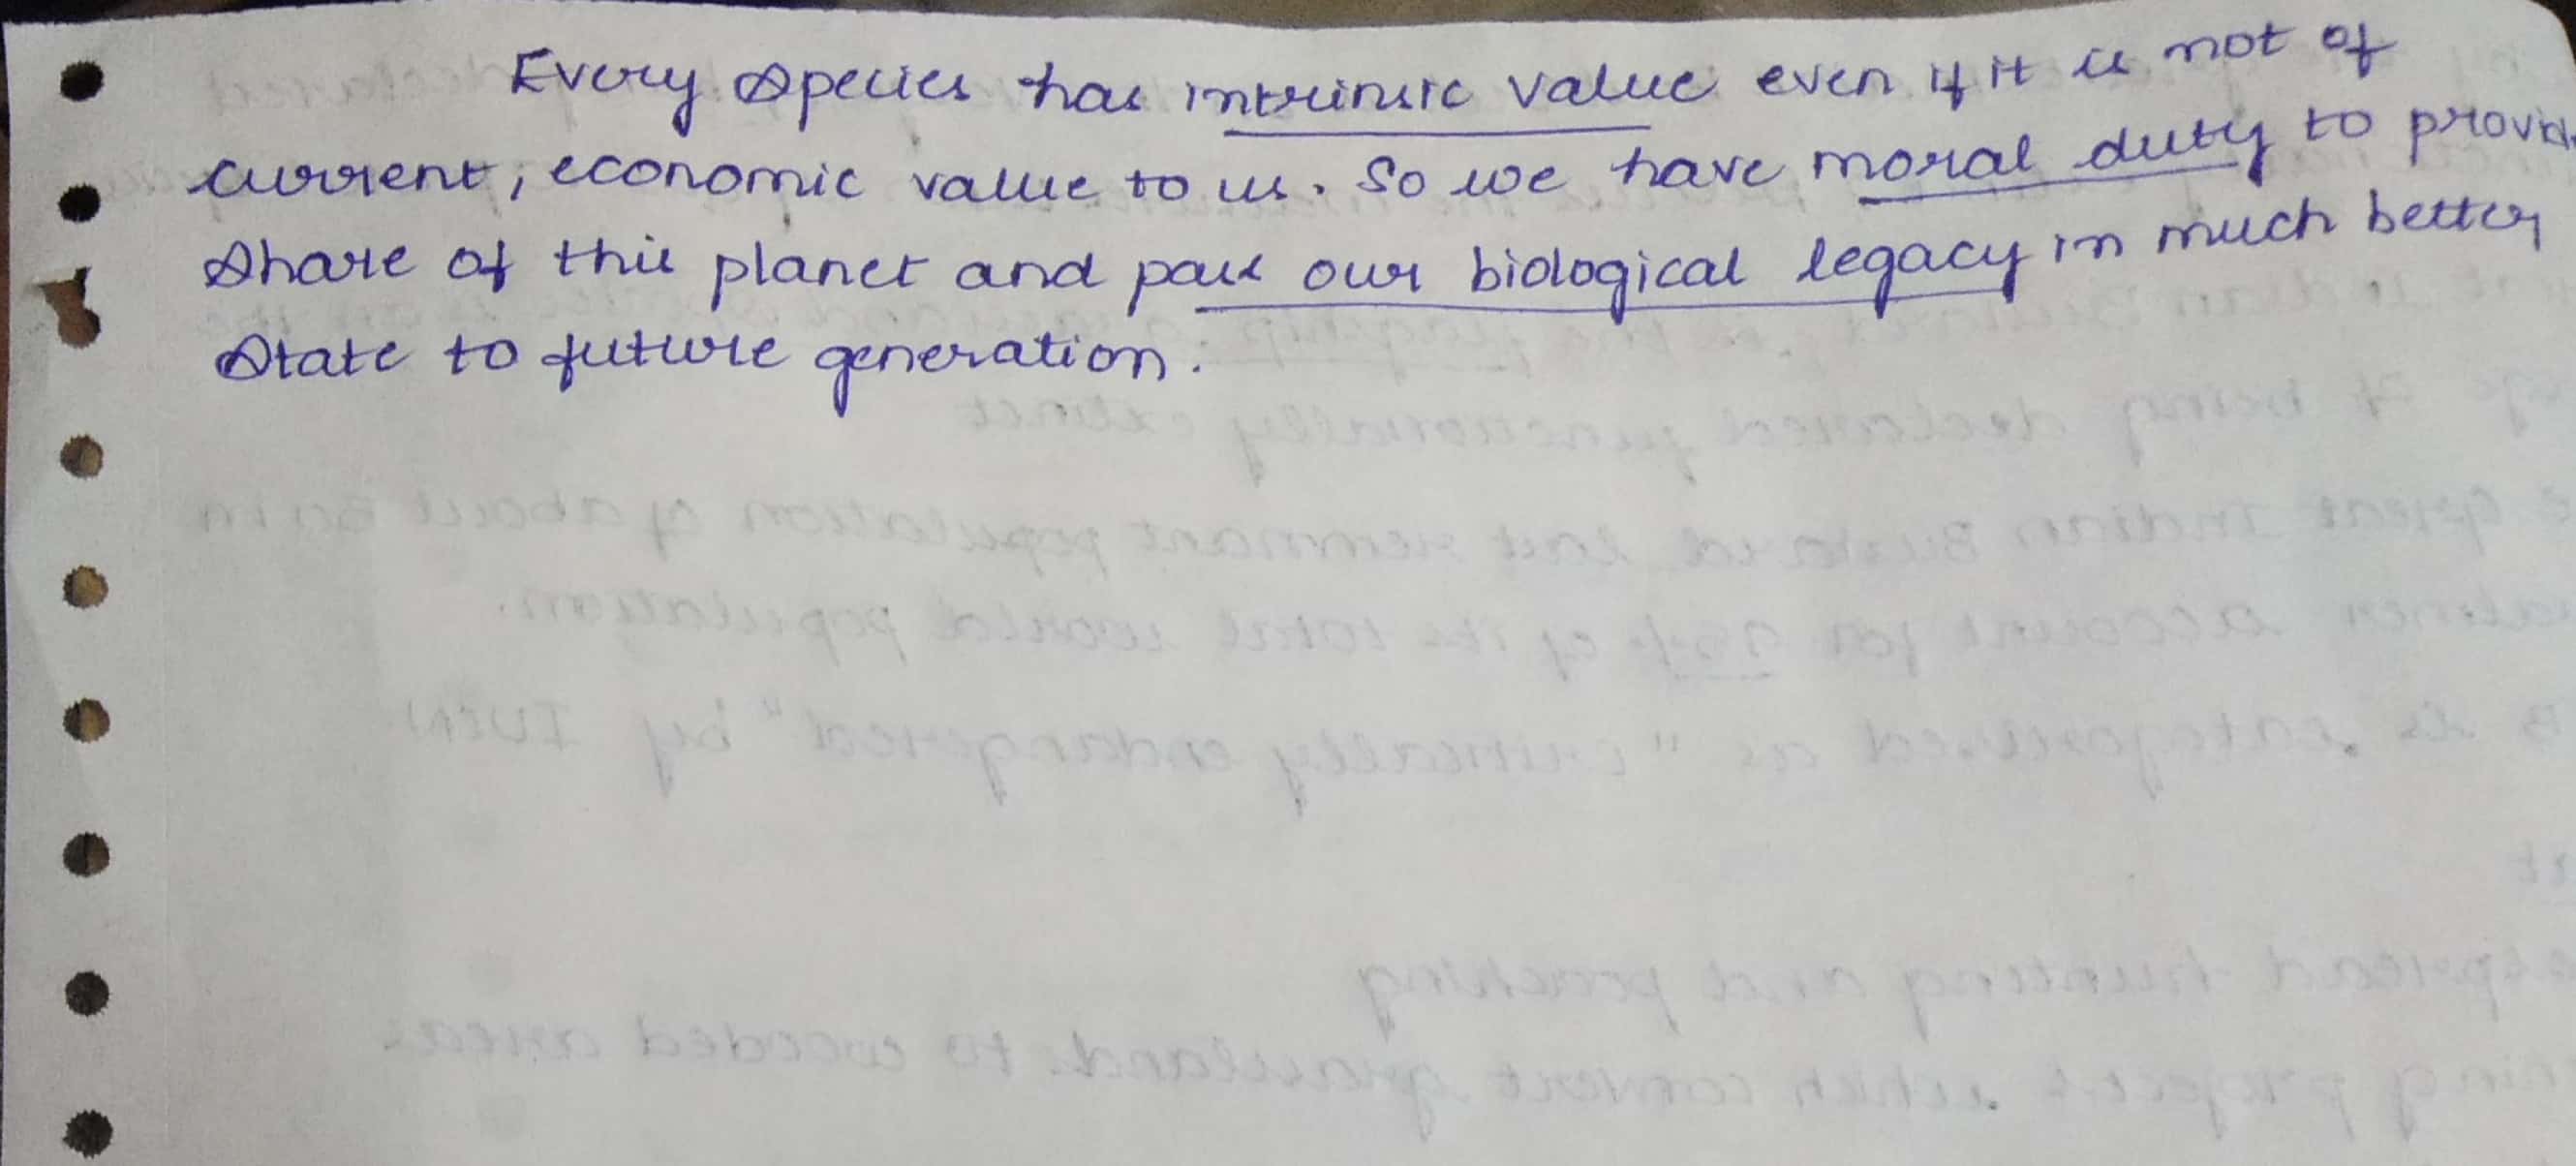 Every species has intrinsic value even if it is not of
current, economic value to us. So we have moral duty to provid
share of this planet and pass our biological legacy in much better
state to future generation.